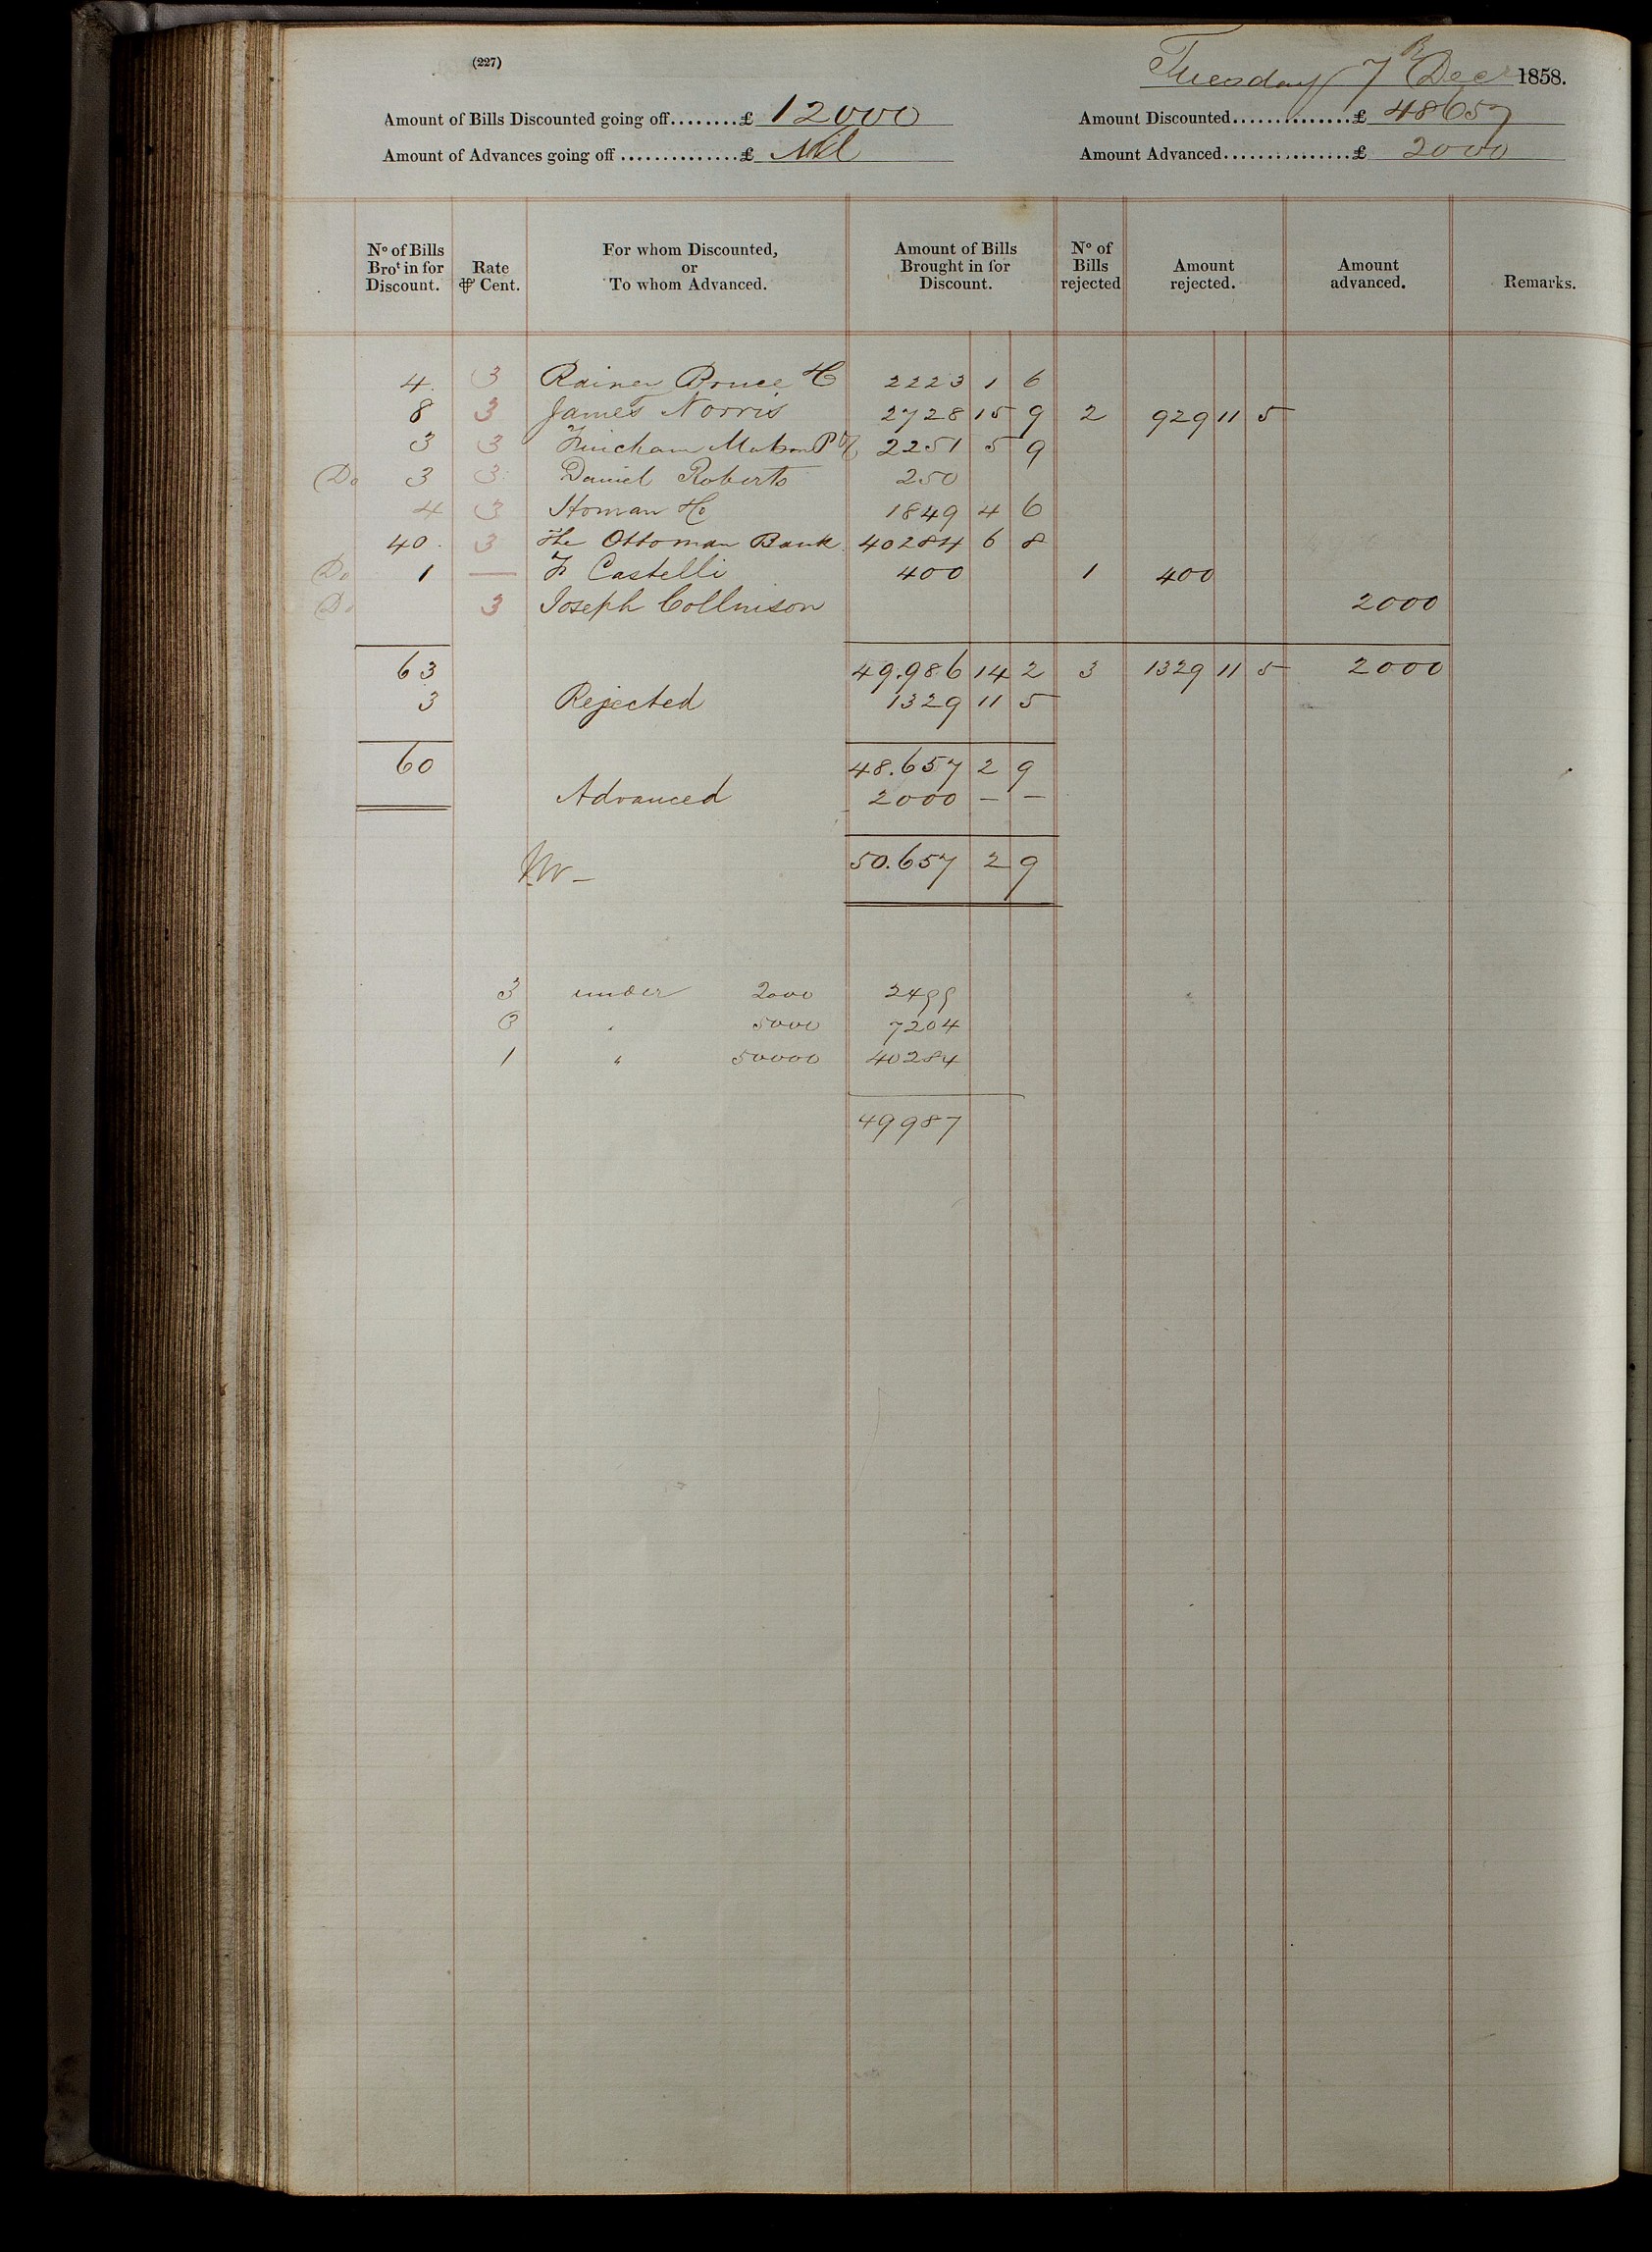 (227)
Tuesday 7th Decr 1858.
Amount of Bills Discounted going off........£ 12000 Amount Discounted..............£ 48657
Amount of Advances going off..............£ Nil Amount Advanced...............£ 2000
No of Bills Brot in for Discount. Rate ⅌ Cent. For whom Discounted, or To whom Advanced. Amount of Bills Brought in for Discount. No of Bills rejected Amount rejected. Amount advanced. Remarks.
4. 3 Rainey Bruce & Co 2223 1 6
8 3 James Norris 2728 15 9 2 929 11 5
3 3 Fincham 2251 5 9
Do 3 3 Daniel Roberts 250
4 3 Homan & Co 1849 4 6
40. 3 The Ottoman Bank 40284 6 8
Do 1 — F Castelli 400 1 400
Do 3 Joseph Collinson 2000
63 49.986 14 2 3 1329 11 5 2000
3 Rejected 1329 11 5
60 48.657 2 9
Advanced 2000 — —
50.657 2 9
3 under 2000 2499
3 " 5000 7204
1 " 50000 40284
49987